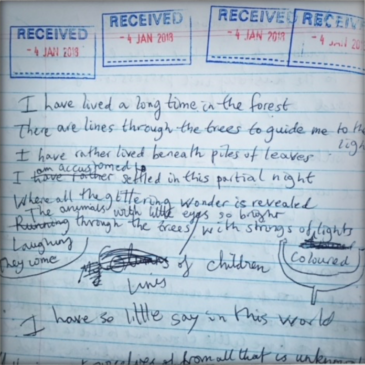 RECEIVED RECEIVED RECEIVED RECEIVED
- 4 JAN 2018 - 4 JAN 2018 - 4 JAN 2018 - 4
I have lived a long time in the forest
There are lines through the trees to guide me to the
light
I have rather lived beneath piles of leaves
am accustomed to
I have rather settled in this partial night
Where all the glittering wonder is revealed
The animals with little eyes so bright
Running through the trees with strings of lights
Laughing
They come
of children
Coloured
Lines
I have so little say in this world
from all that is